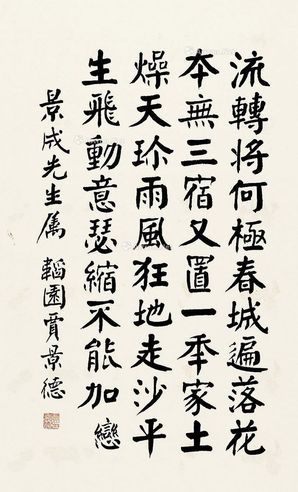 流轉將何極春城遍落花
夲無三宿又置一秊家土
燥天珎雨風狂地走沙平
生飛動意瑟縮不能加 戀
景成先生属 韜園賈景德